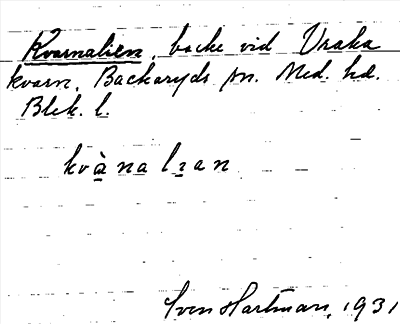 Kvarnalien, backe vid Vraka
kvarn, Backaryds sn. Med. hd.
Blek. l.
kvànalɪan
Sven Hartman, 1931